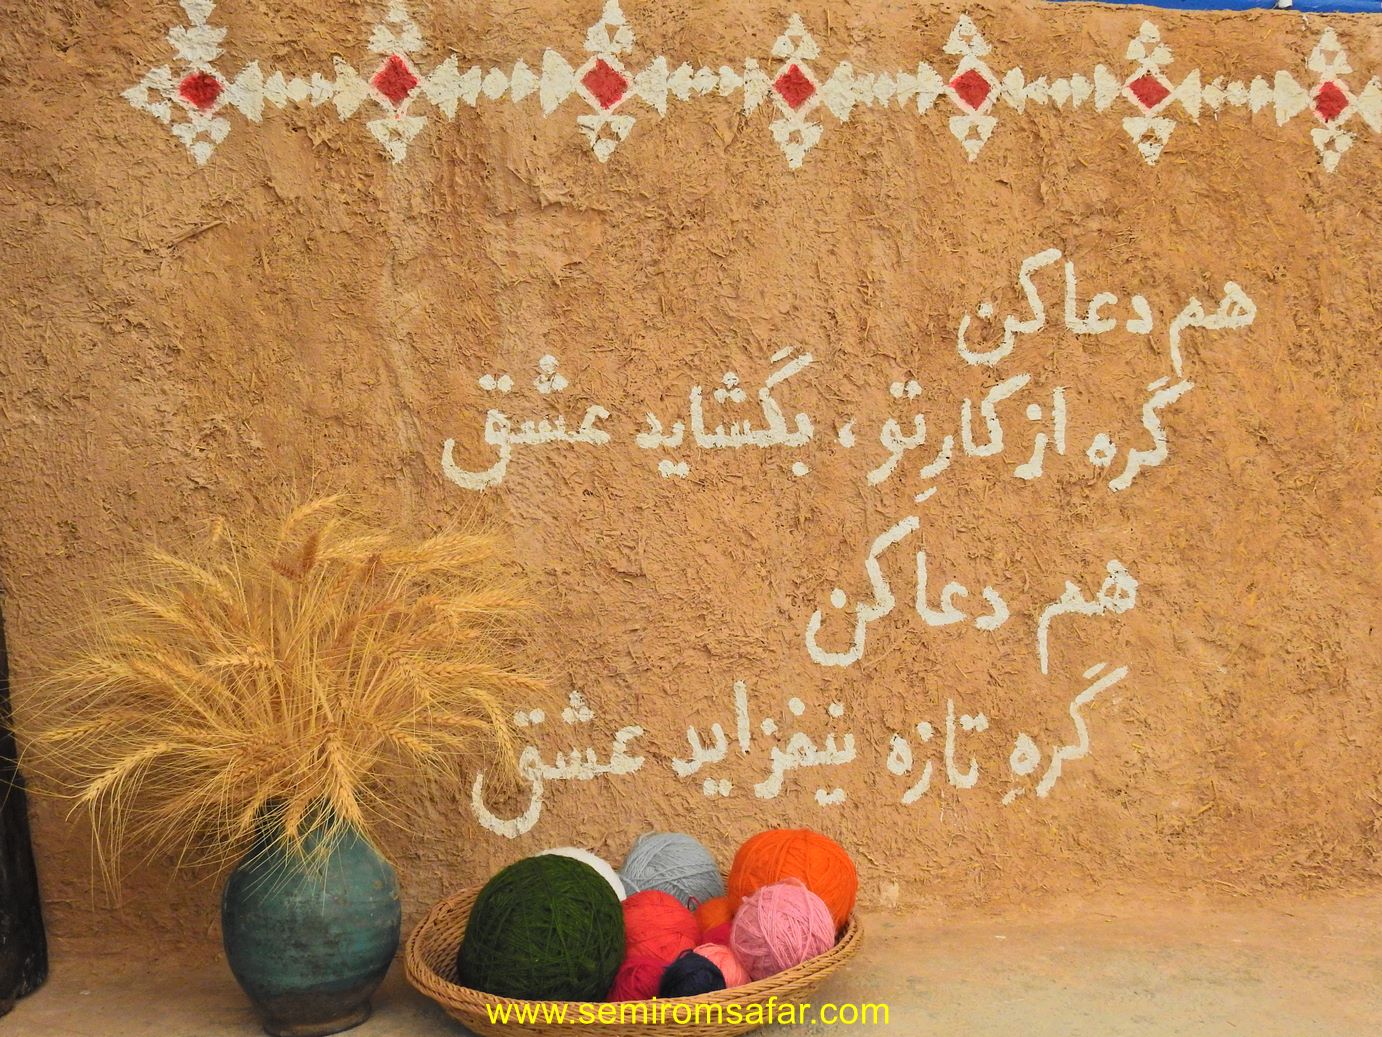 هم دعا کن
گره از کارِ تو، بگشاید عشق
هم دعا کن
گرهِ تازه نیفزاید عشق
www.semiromsafar.com